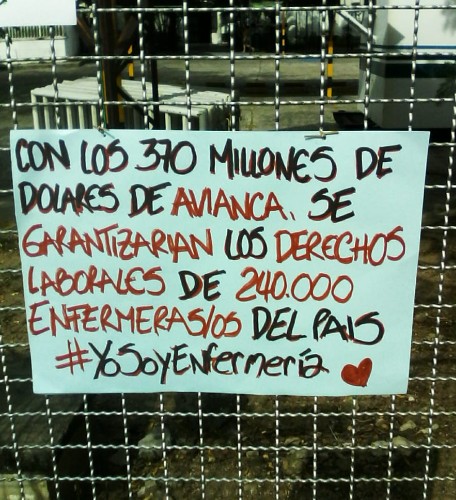 CON LOS 370 MILLONES DE
DOLARES DE AVIANCA. SE
GARANTIZARIAN LOS DERECHOS
LABORALES DE 240.000
ENFERMERAS/OS DEL PAIS
#YoSoyEnfermería